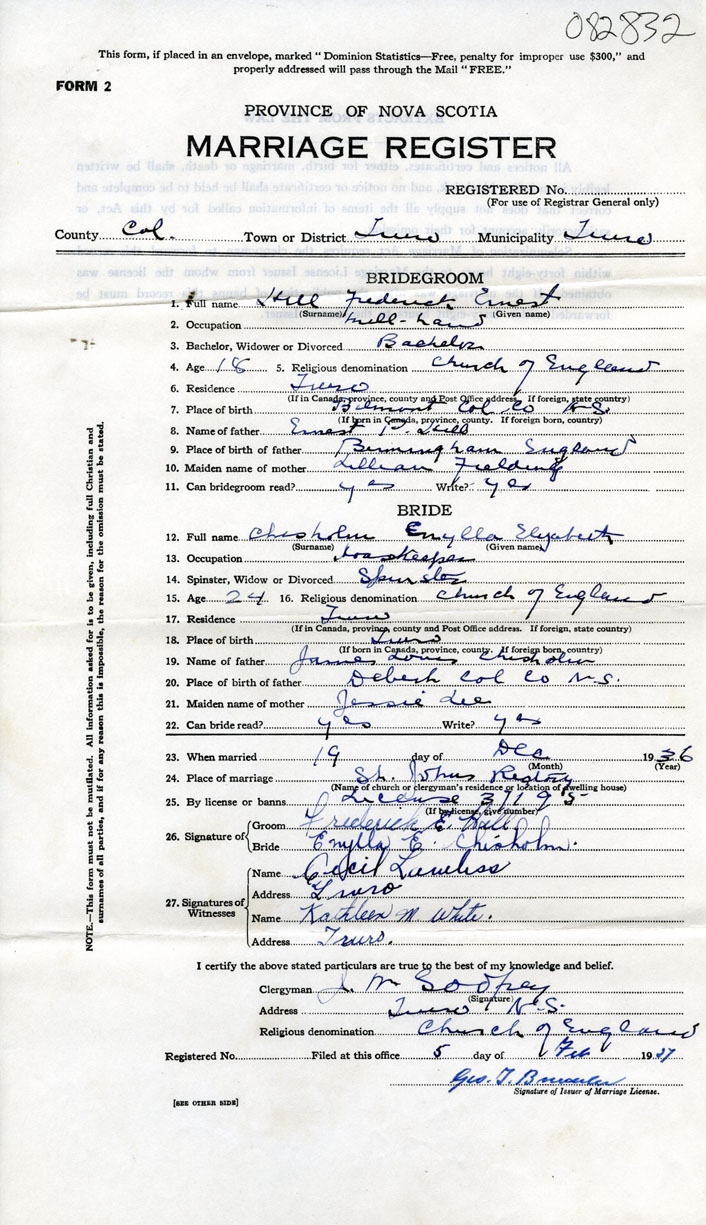 082832
This form, if placed in an envelope, marked "Dominion Statistics—Free, penalty for improper use $300," and
properly addressed will pass through the Mail "FREE."
FORM 2
PROVINCE OF NOVA SCOTIA
MARRIAGE REGISTER
REGISTERED No.
(For use of Registrar General only)
County Col. Town or District Truro Municipality Truro
BRIDEGROOM
1. Full name Hill Frederick Ernest
(Surname) (Given name)
2. Occupation Mill-hand
3. Bachelor, Widower or Divorced Bachelor
4. Age 18 5. Religious denomination Church of England
6. Residence Truro
(If in Canada, province, county and Post Office address. If foreign, state country)
7. Place of birth Belmont Col Co N.S.
(If born in Canada, province, county. If foreign born, country)
8. Name of father Ernest P. Hill
9. Place of birth of father Birmingham England
10. Maiden name of mother Lillian Fielding
11. Can bridegroom read? yes Write? yes
BRIDE
12. Full name Chisholm Emylla Elizabeth
(Surname) (Given name)
13. Occupation
14. Spinster, Widow or Divorced Spinster
15. Age 24 16. Religious denomination Church of England
17. Residence Truro
(If in Canada, province, county and Post Office address. If foreign, state country)
18. Place of birth Truro
(If born in Canada, province, county. If foreign born, country)
19. Name of father James Louis Chisholm
20. Place of birth of father Debert Col Co N.S.
21. Maiden name of mother Jessie Lee
22. Can bride read? yes Write? yes
23. When married 19 day of Dec 1936
(Month) (Year)
24. Place of marriage St. Johns Rectory
(Name of church or clergyman's residence or location of dwelling house)
25. By license or banns License 3195
(If by license, give number)
26. Signature of Groom Frederick E. Hill
Bride Emylla E. Chisholm.
27. Signatures of Witnesses
Name Cecil
Address Truro
Name Kathleen M White.
Address Truro.
I certify the above stated particulars are true to the best of my knowledge and belief.
Clergyman J. M Godfrey
(Signature)
Address Truro N.S.
Religious denomination Church of England
Registered No. Filed at this office 5 day of Feb 1937
Geo. T.
Signature of Issuer of Marriage License.
[SEE OTHER SIDE]
NOTE.—This form must not be mutilated. All information asked for is to be given, including full Christian and
surnames of all parties, and if for any reason this is impossible, the reason for the omission must be stated.